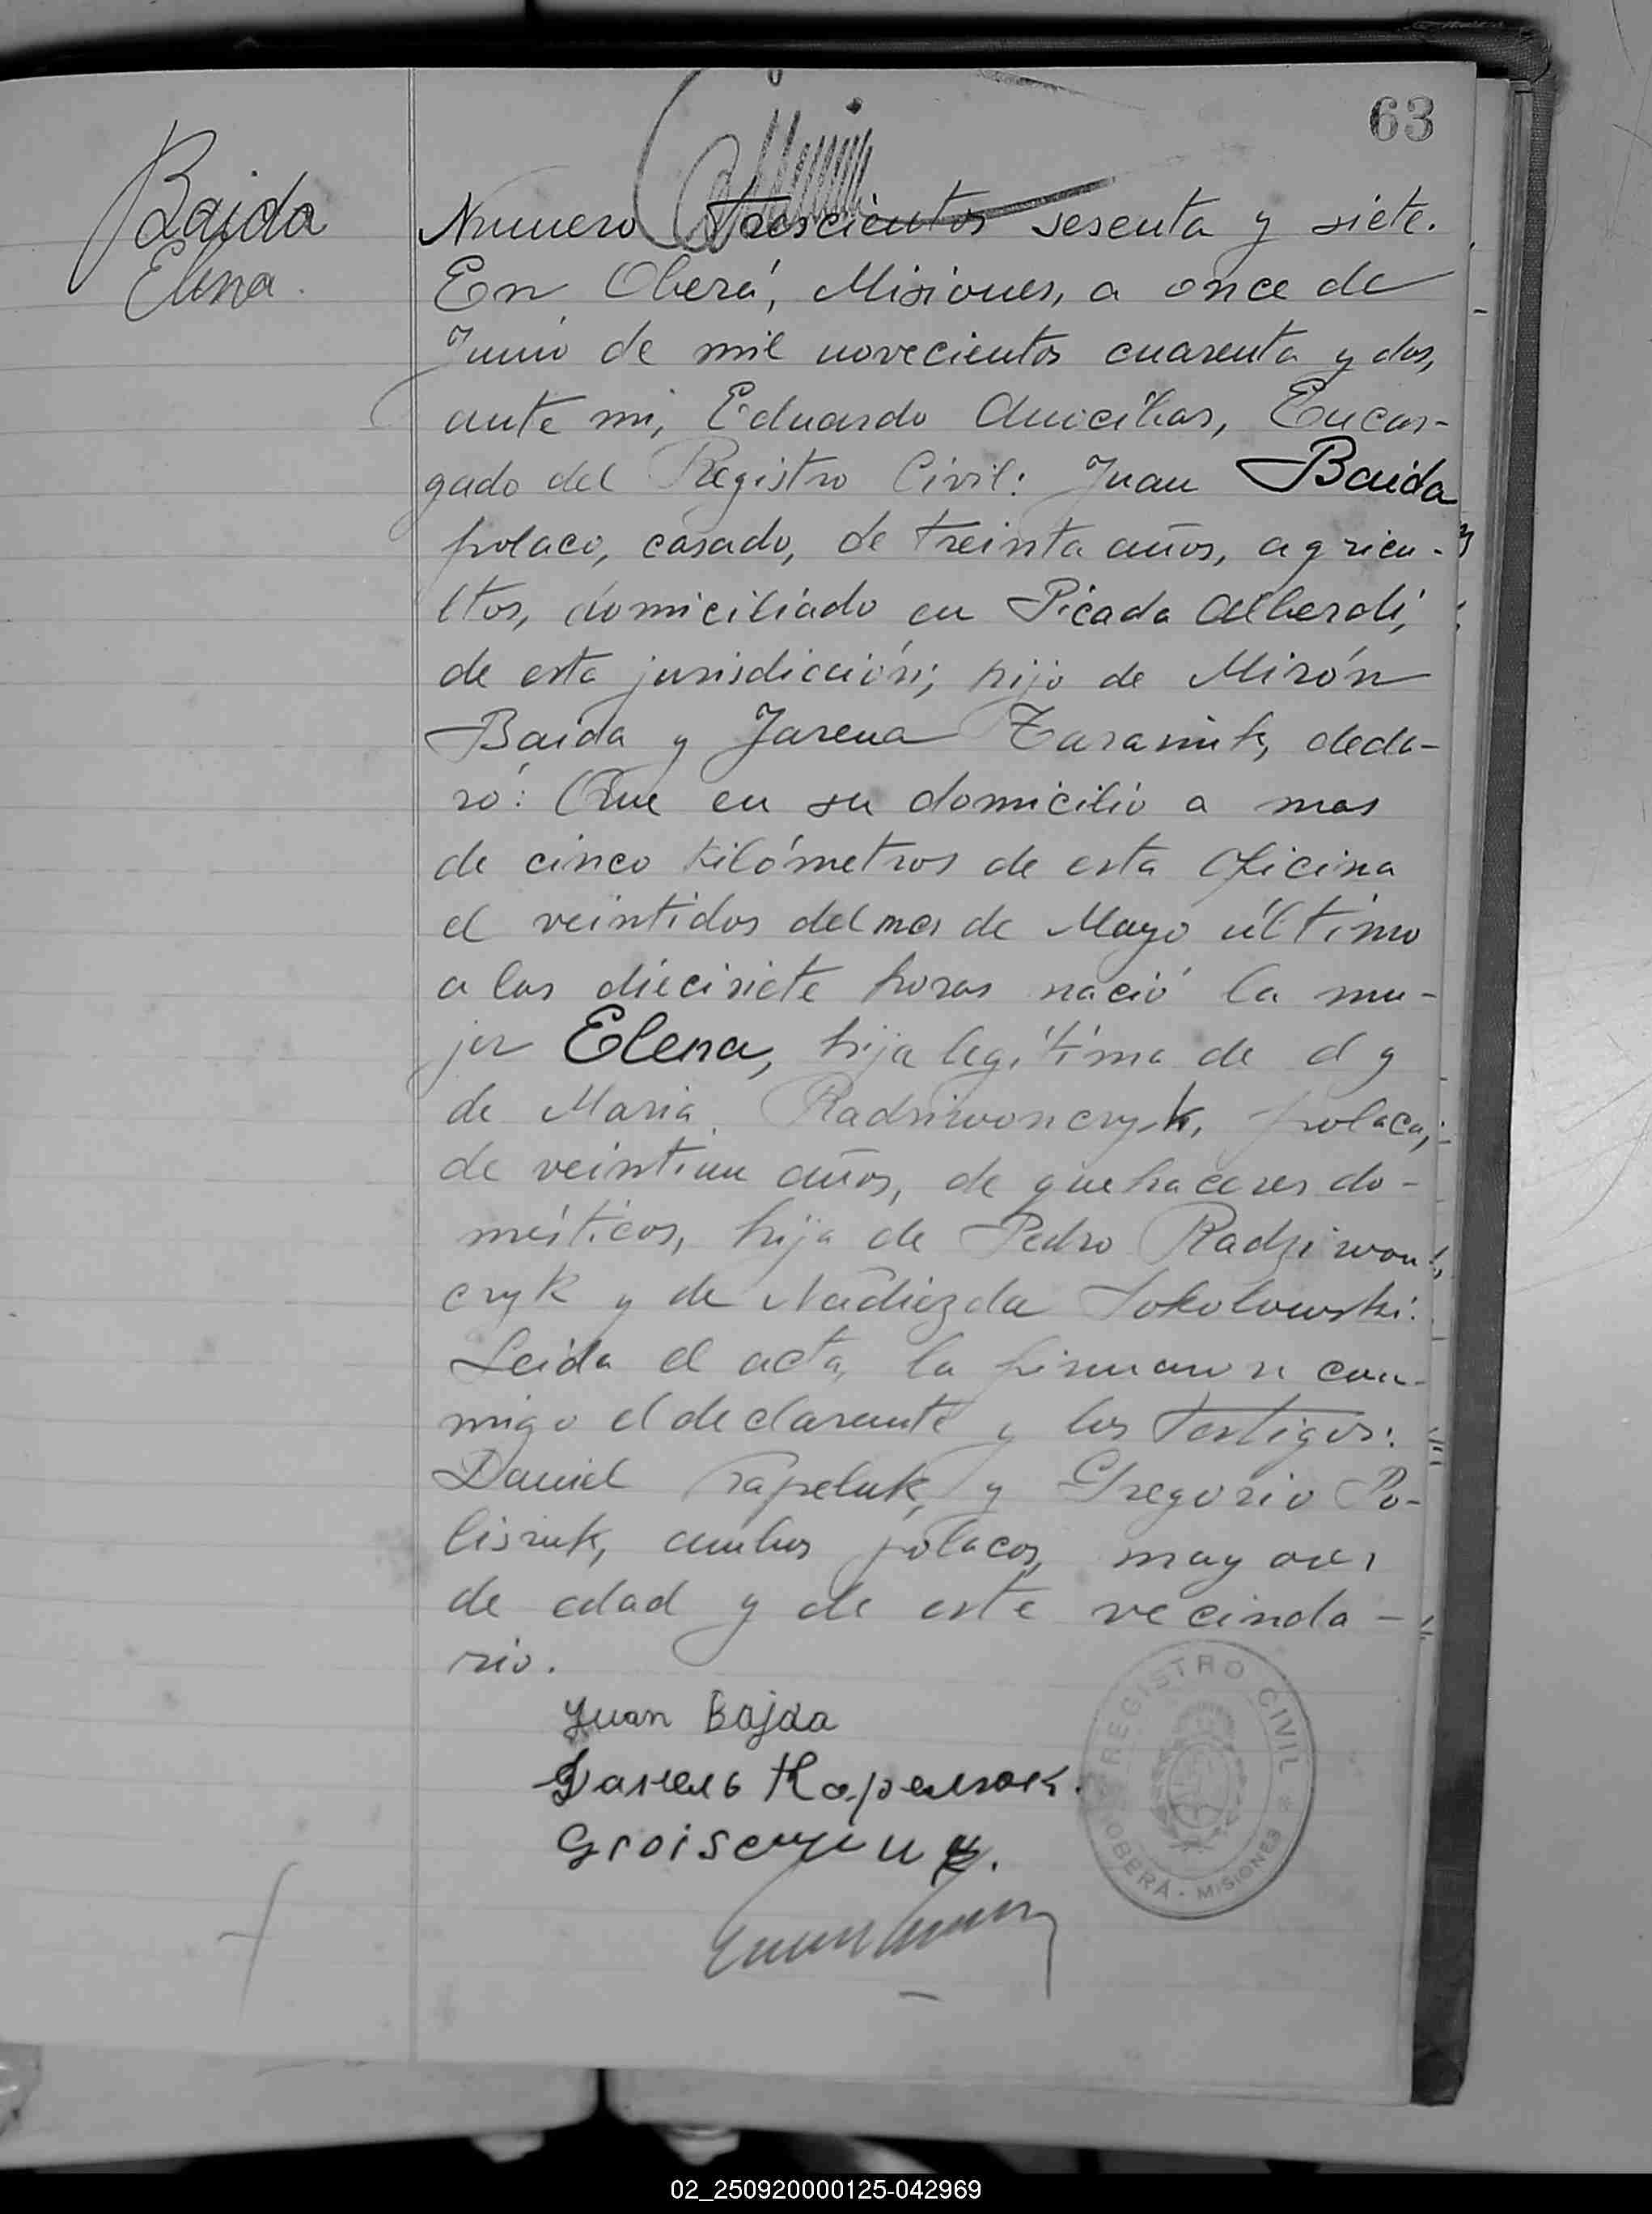 63
Baida
Elena.
Numero trescientos sesenta y siete.
En Oberá, Misiones, a once de
Junio de mil novecientos cuarenta y dos,
ante mi, Eduardo Encar-
gado del Registro Civil: Juan Baida
polaco, casado, de treinta años, agricu-
ltor, domiciliado en Picada Alberdi,
de esta jurisdicción; hijo de Mirón
Baida y Jarena Taraniuk, decla-
ró: Que en su domicilio a mas
de cinco kilómetros de esta Oficina
el veintidos del mes de Mayo último
a las diecisiete horas nació la mu-
jer Elena, hija legítima de el y
de Maria Radziwonczyk, polaca,
de veintiun años, de quehaceres do-
mésticos, hija de Pedro Radziwon-
czyk y de Nadiezda Sokolowski.
Leida el acta, la firmaron con-
migo el declarante y los testigos:
Daniel y Gregorio Po-
liszuk, ambos polacos, mayores
de edad y de este vecinda-
rio.
Juan Bajda
Даниль
REGISTRO CIVIL
OBERÁ - MISIONES
02_250920000125-042969